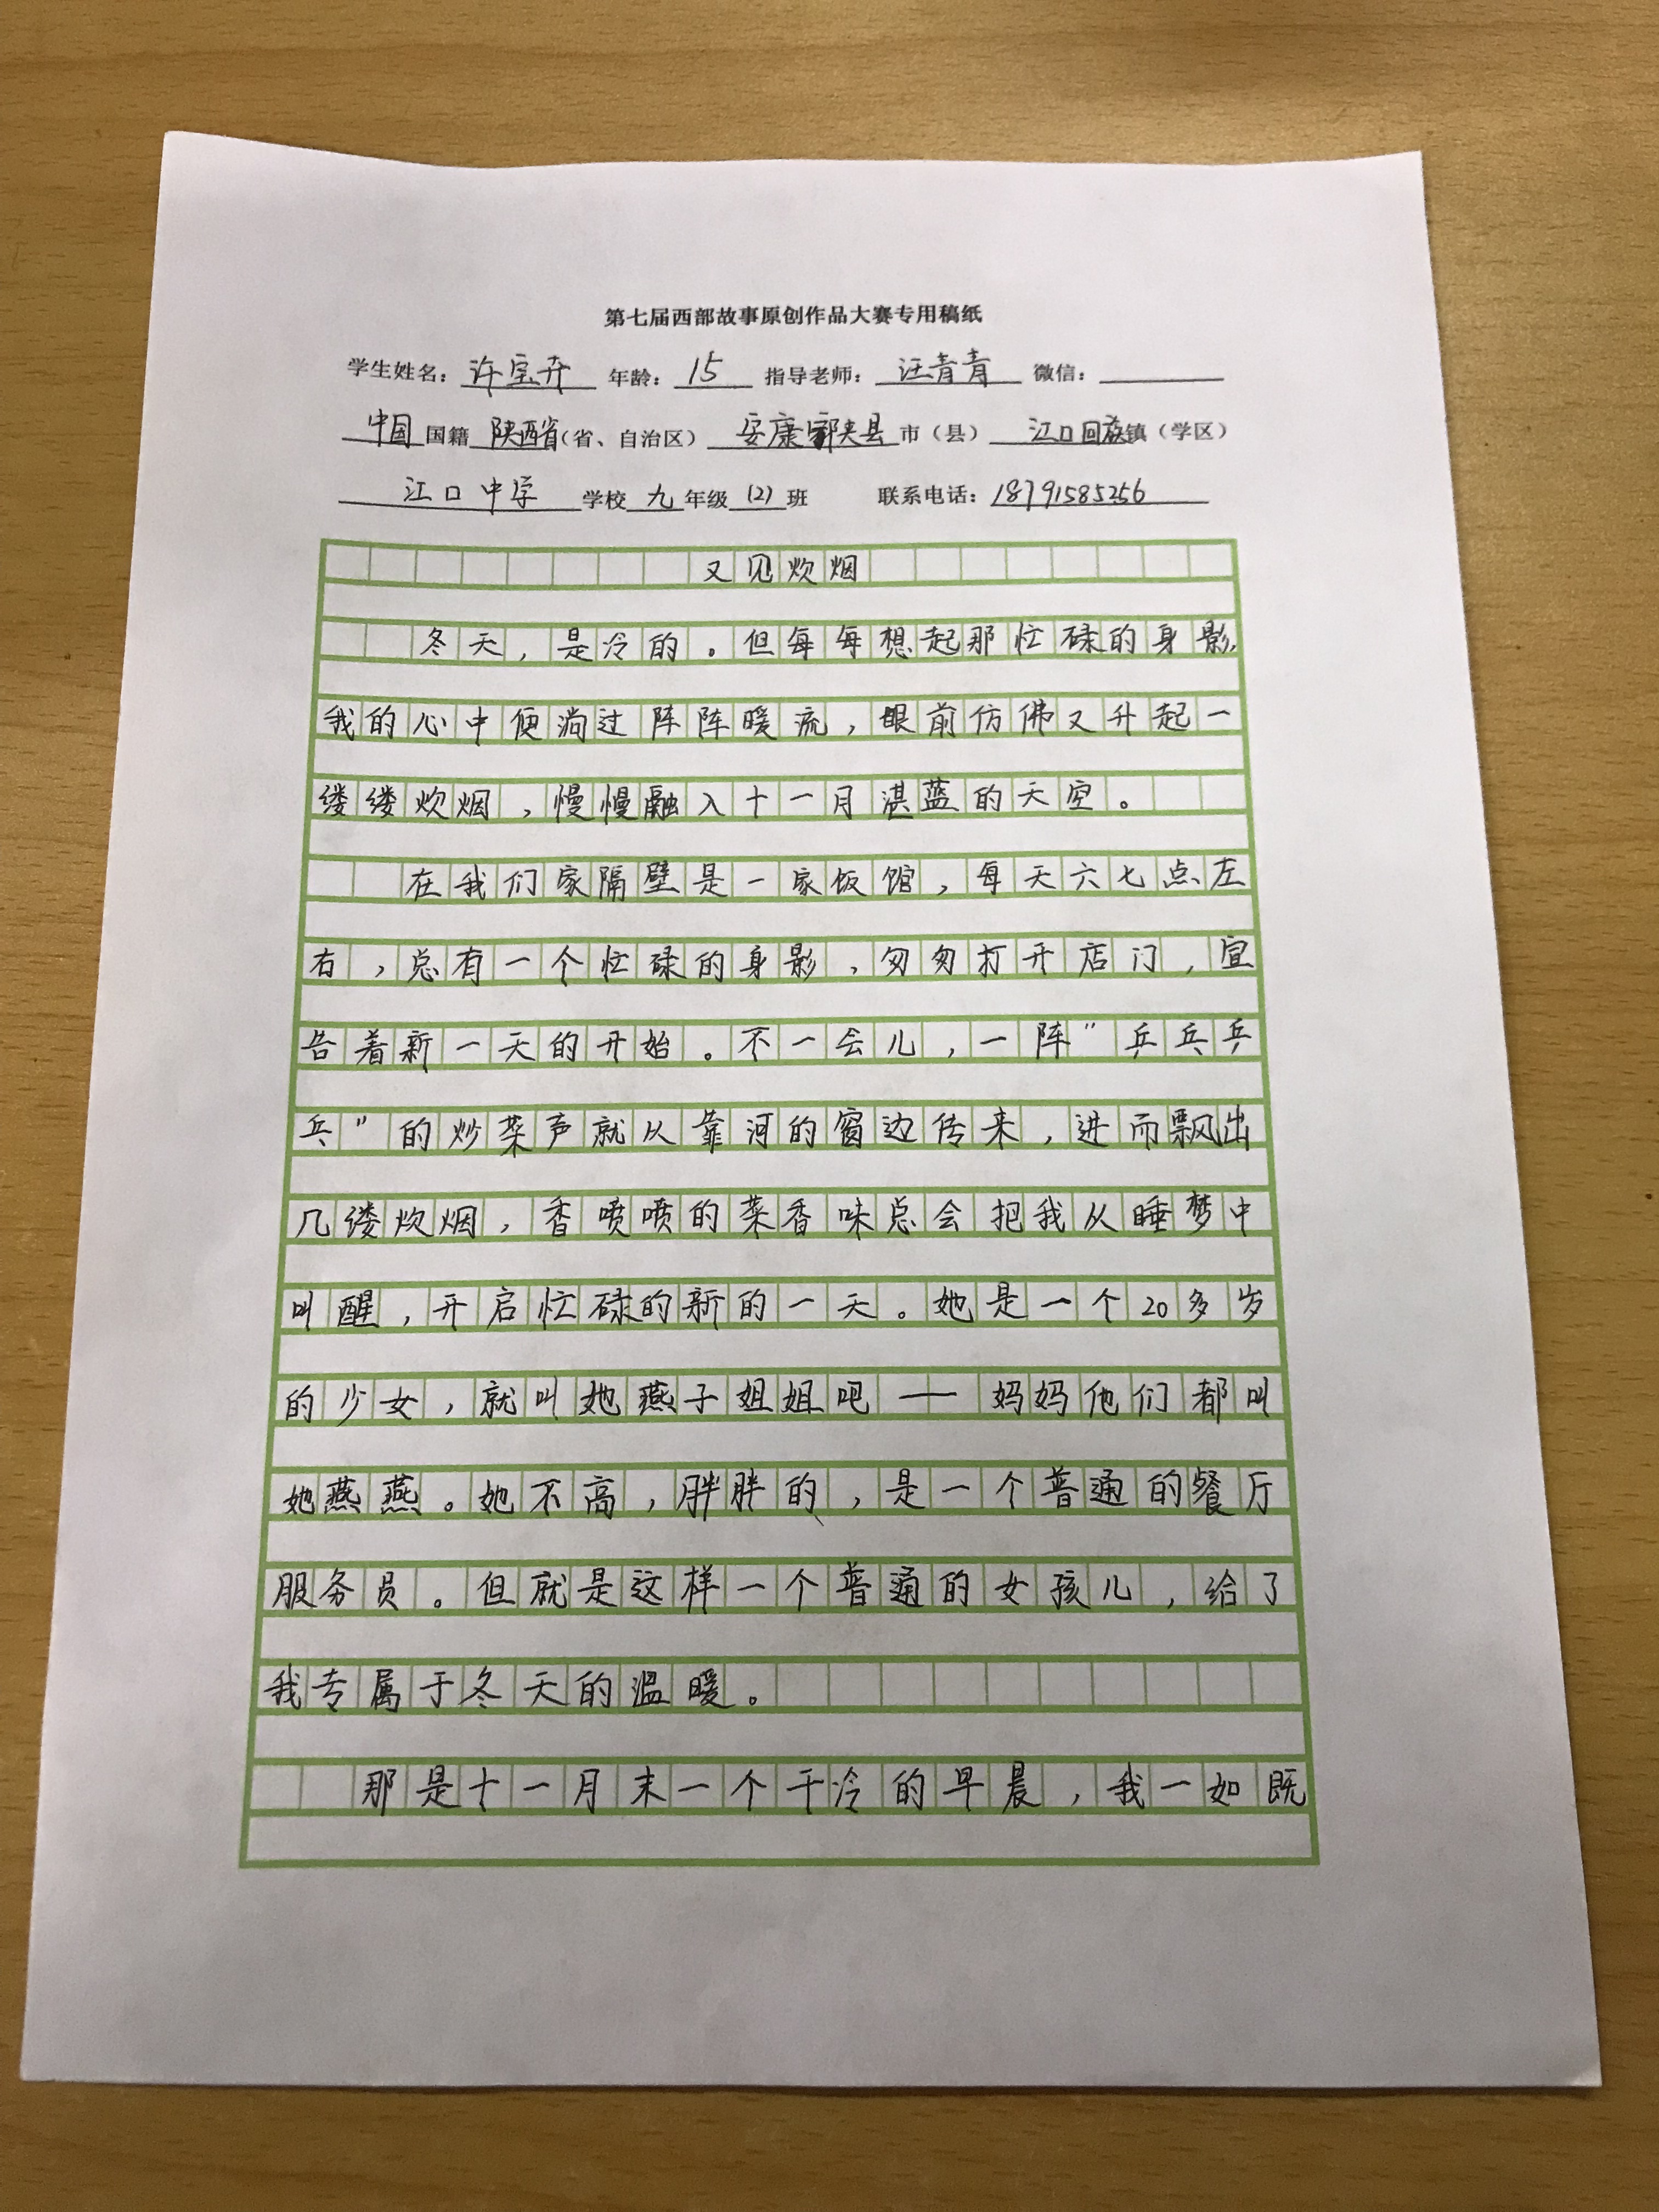 第七届西部故事原创作品大赛专用稿纸
学生姓名：许宝卉 年龄：15 指导老师：汪青青 微信：
中国国籍 陕西省（省、自治区） 安康 市（县） 江口回族镇（学区）
江口中学 学校 九 年级 (2) 班 联系电话：18791585256
又见炊烟
冬天，是冷的。但每每想起那忙碌的身影，
我的心中便淌过阵阵暖流，眼前仿佛又升起一
缕缕炊烟，慢慢融入十一月湛蓝的天空。
在我们家隔壁是一家饭馆，每天六七点左
右，总有一个忙碌的身影，匆匆打开店门，宣
告着新一天的开始。不一会儿，一阵“乒乓乒
乓”的炒菜声就从靠河的窗边传来，进而飘出
几缕炊烟，香喷喷的菜香味总会把我从睡梦中
叫醒，开启忙碌的新的一天。她是一个20多岁
的少女，就叫她燕子姐姐吧——妈妈他们都叫
她燕燕。她不高，胖胖的，是一个普通的餐厅
服务员。但就是这样一个普通的女孩儿，给了
我专属于冬天的温暖。
那是十一月末一个干冷的早晨，我一如既